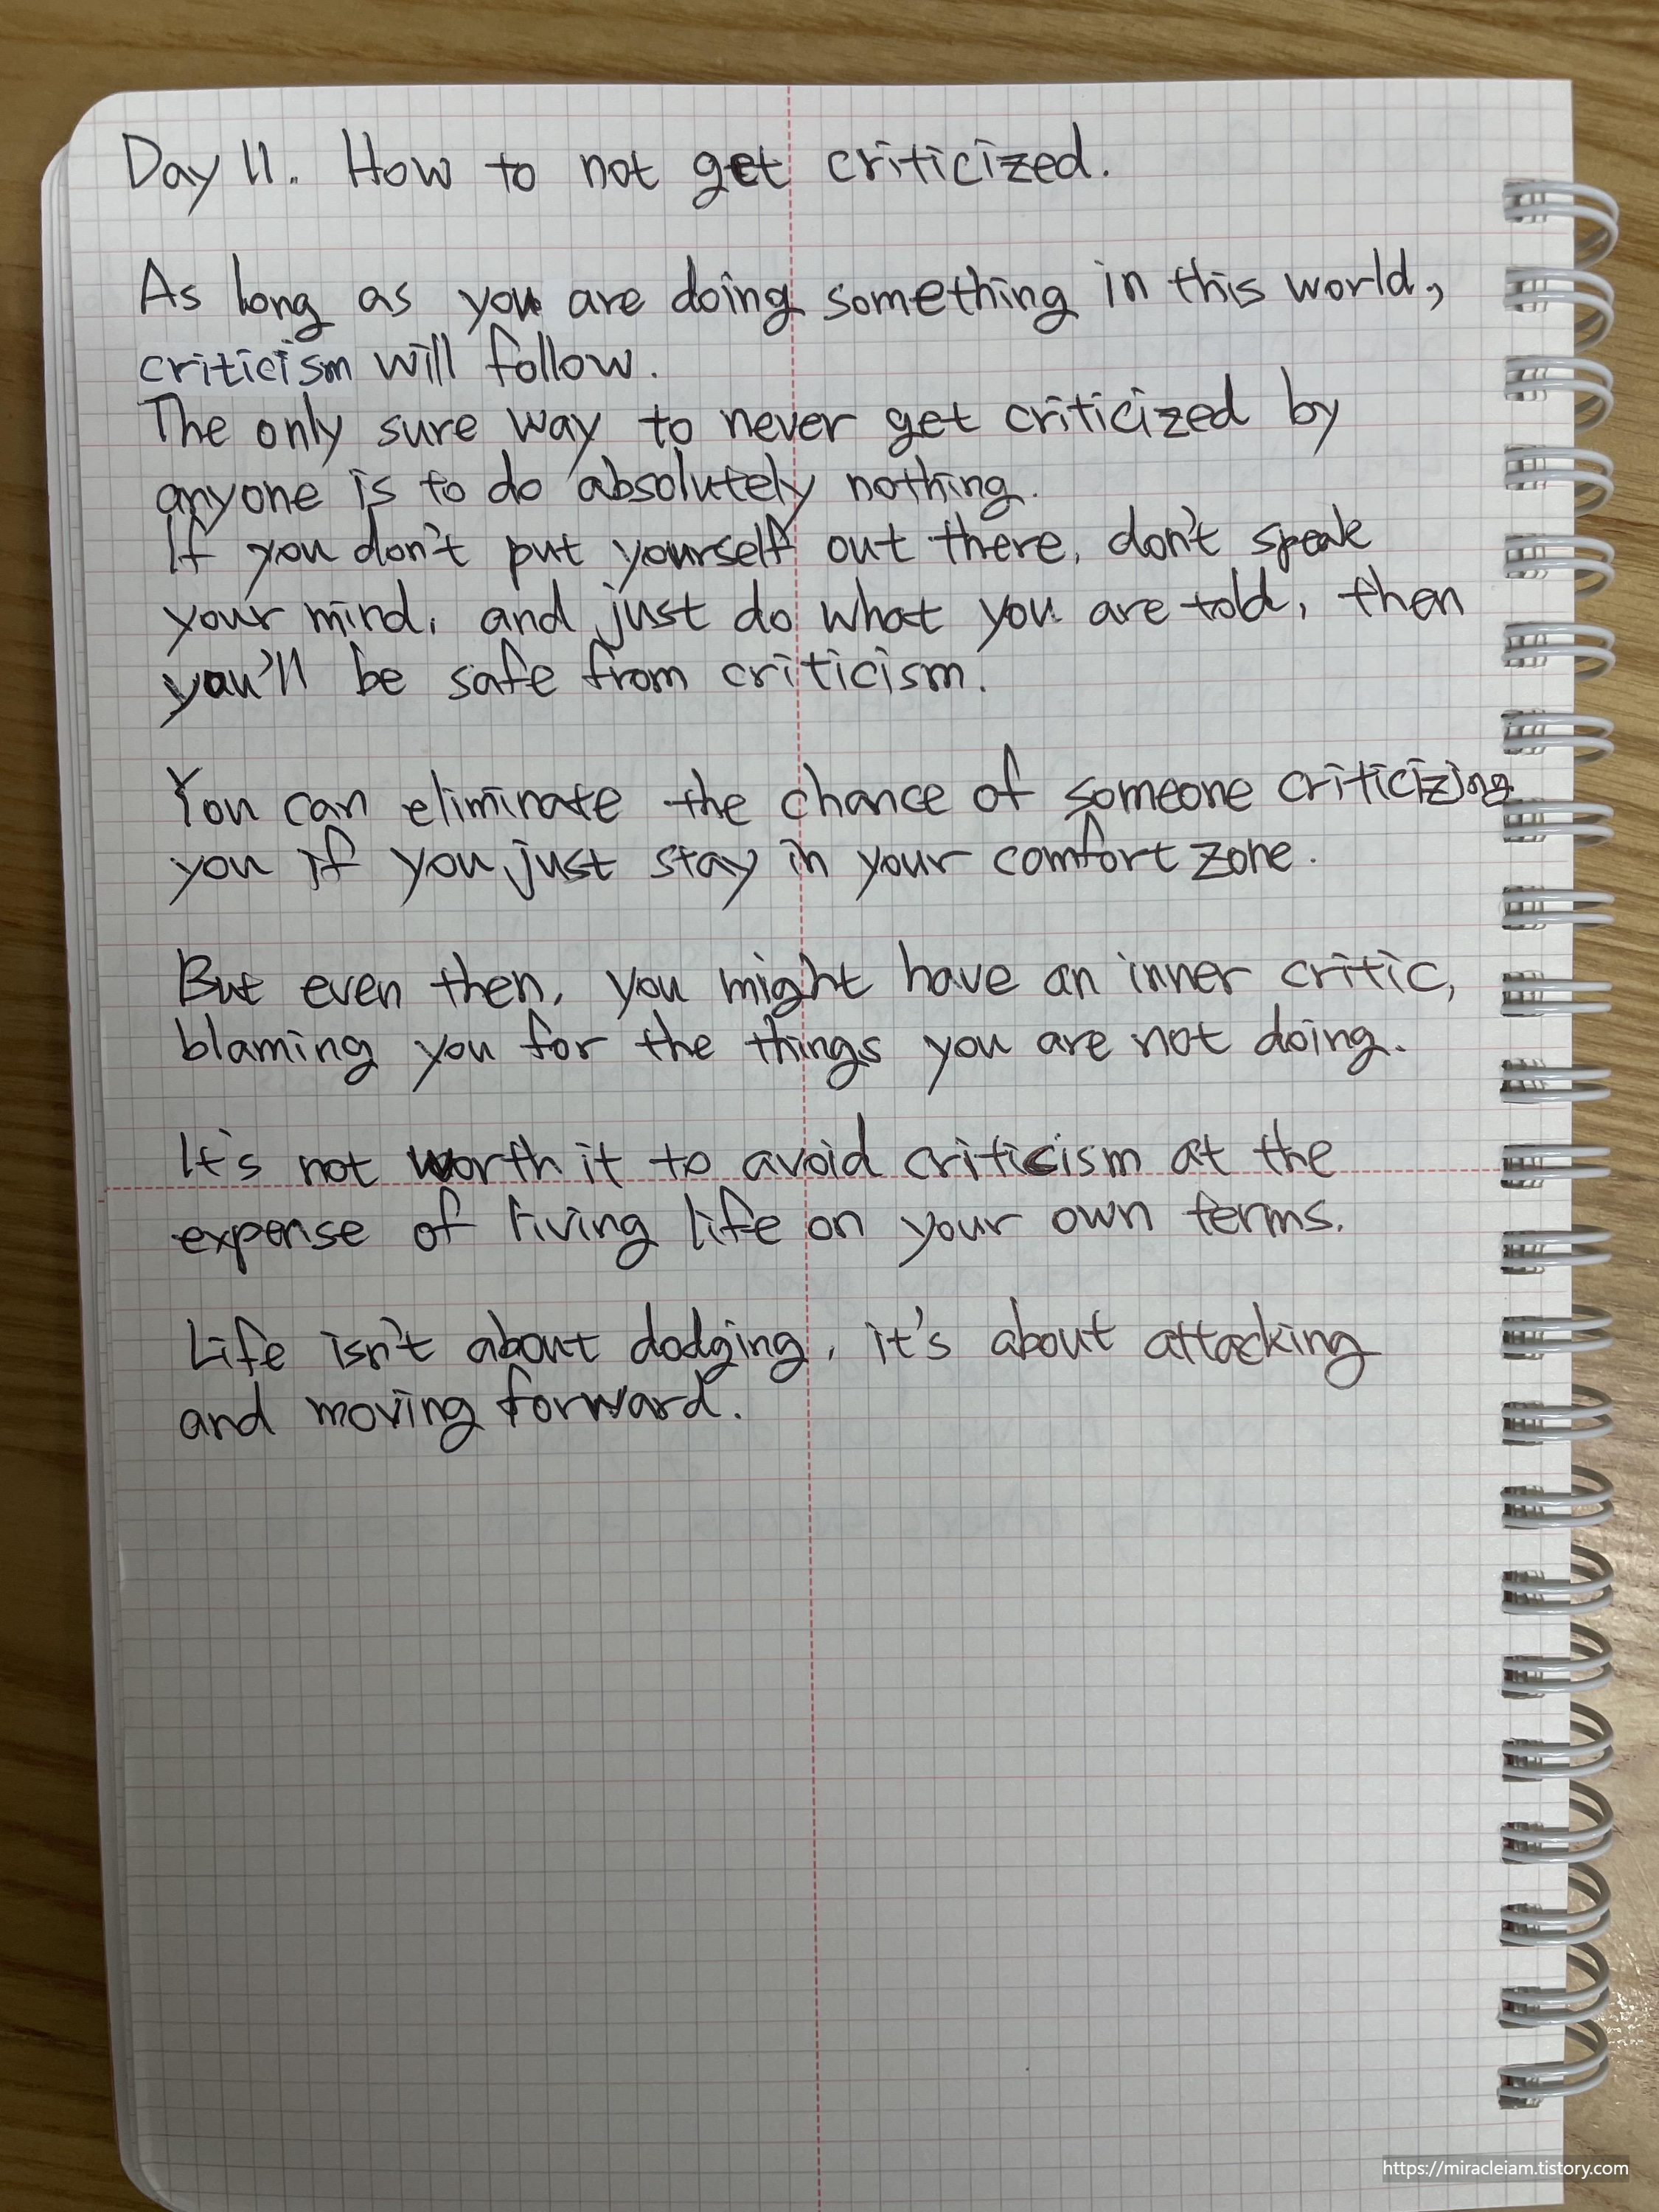 Day 11. How to not get criticized.
As long as you are doing something in this world,
criticism will follow.
The only sure way to never get criticized by
anyone is to do absolutely nothing.
If you don't put yourself out there, don't speak
your mind, and just do what you are told, then
you'll be safe from criticism.
You can eliminate the chance of someone criticizing
you if you just stay in your comfort zone.
But even then, you might have an inner critic,
blaming you for the things you are not doing.
It's not worth it to avoid criticism at the
expense of living life on your own terms.
Life isn't about dodging, it's about attacking
and moving forward.
https://miracleiam.tistory.com